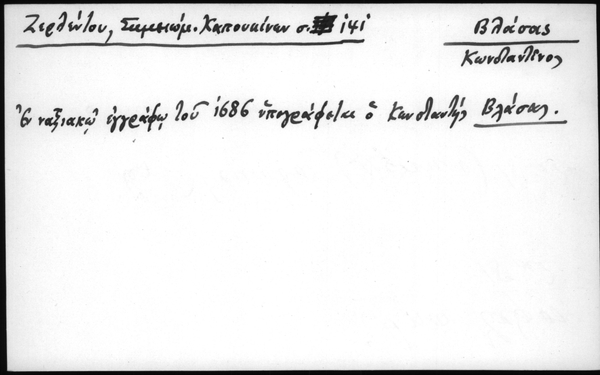 Ζερλέντου, Σημειώμ. Καπουκίνων σ. 141
Βλάσας
Κωνσταντῖνος
Ἐν ναξιακῷ ἐγγράφῳ τοῦ 1686 ὑπογράφεται ὁ Κωνσταντῆς Βλάσας.